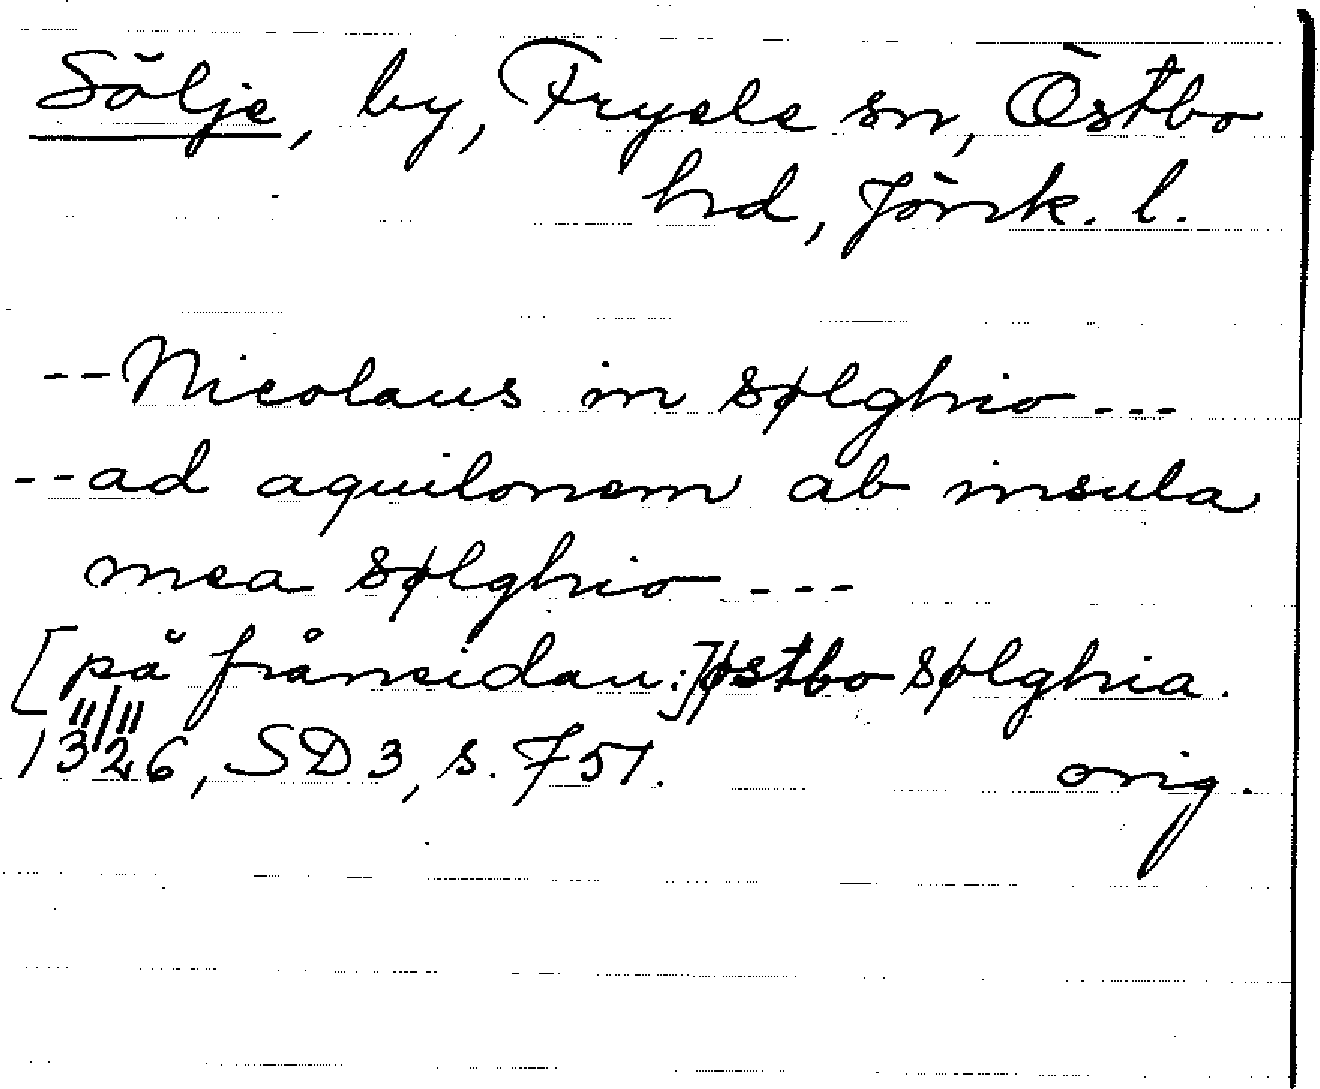 Sölje, by, Fryele sn, Östbo
hd, Jönk. l.
--Nicolaus in sølghio---
--ad aquilonem ab insula
mea sølghio---
[på frånsidan:] østbo sølghia.
11/11
1326, SD 3, s. 751. orig.